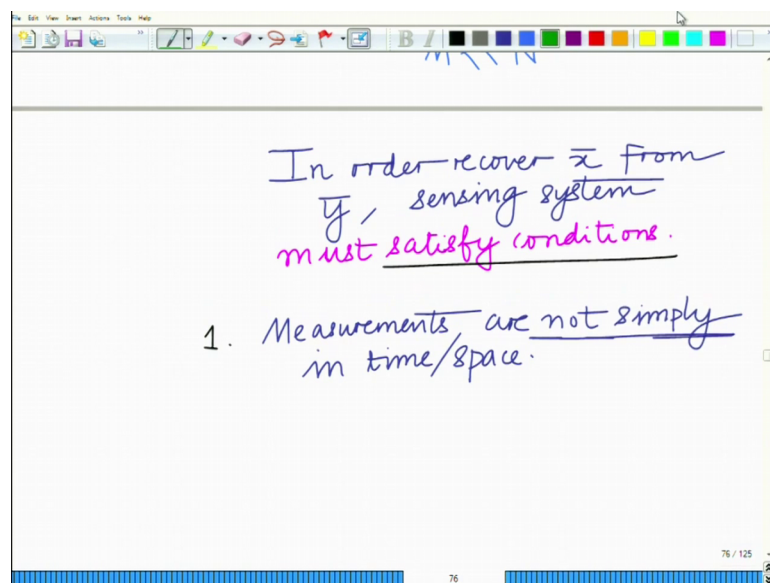 File Edit View Insert Actions Tools Help
B I
In order recover x̅ from
y̅, sensing system
must satisfy conditions.
1. Measurements are not simply
in time/space.
76 / 125
76